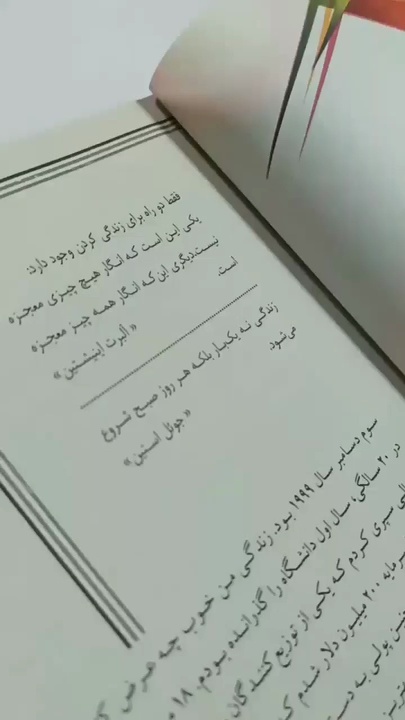 فقط دو راه برای زندگی کردن وجود دارد:
یکی این است که انگار هیچ چیزی معجزه
نیست،دیگری این که انگار همه چیز معجزه
است.
«آلبرت اینیشتین»
زندگی نه یک‌بار بلکه هر روز صبح شروع
می‌شود.
«جوئل استین»
سوم دسامبر سال ۱۹۹۹ بود. زندگی من خوب چه عرض
در ۲۰ سالگی، سال اول دانشگاه را گذرانده بودم. ۱۸
سپری کردم که یکی از توزیع کنندگان
۲۰۰ میلیون دلار شدم
پولی به